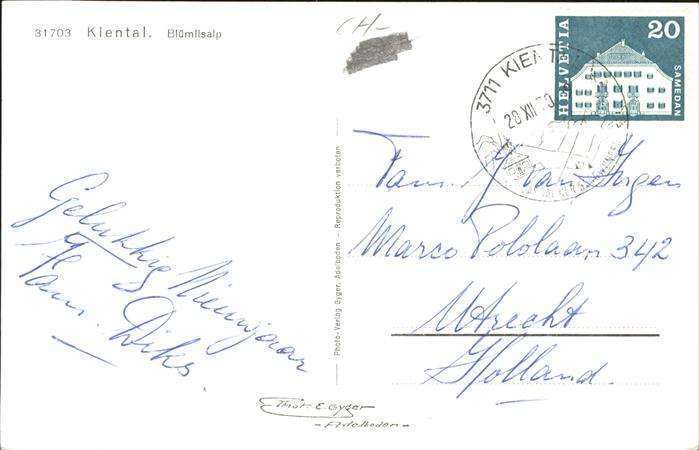 31703 Kiental. Blümlisalp
CH-
HELVETIA
20
SAMEDAN
3711 KIENTAL
28 XII 70
Gelukkig Nieuwjaar
Fam. Diks
Photo-Verlag Gyger, Adelboden - Reproduction verboten
Fam. V. van
Marco Pololaan 342
Utrecht
Holland.
Phot. E. Gyger
- Adelboden -